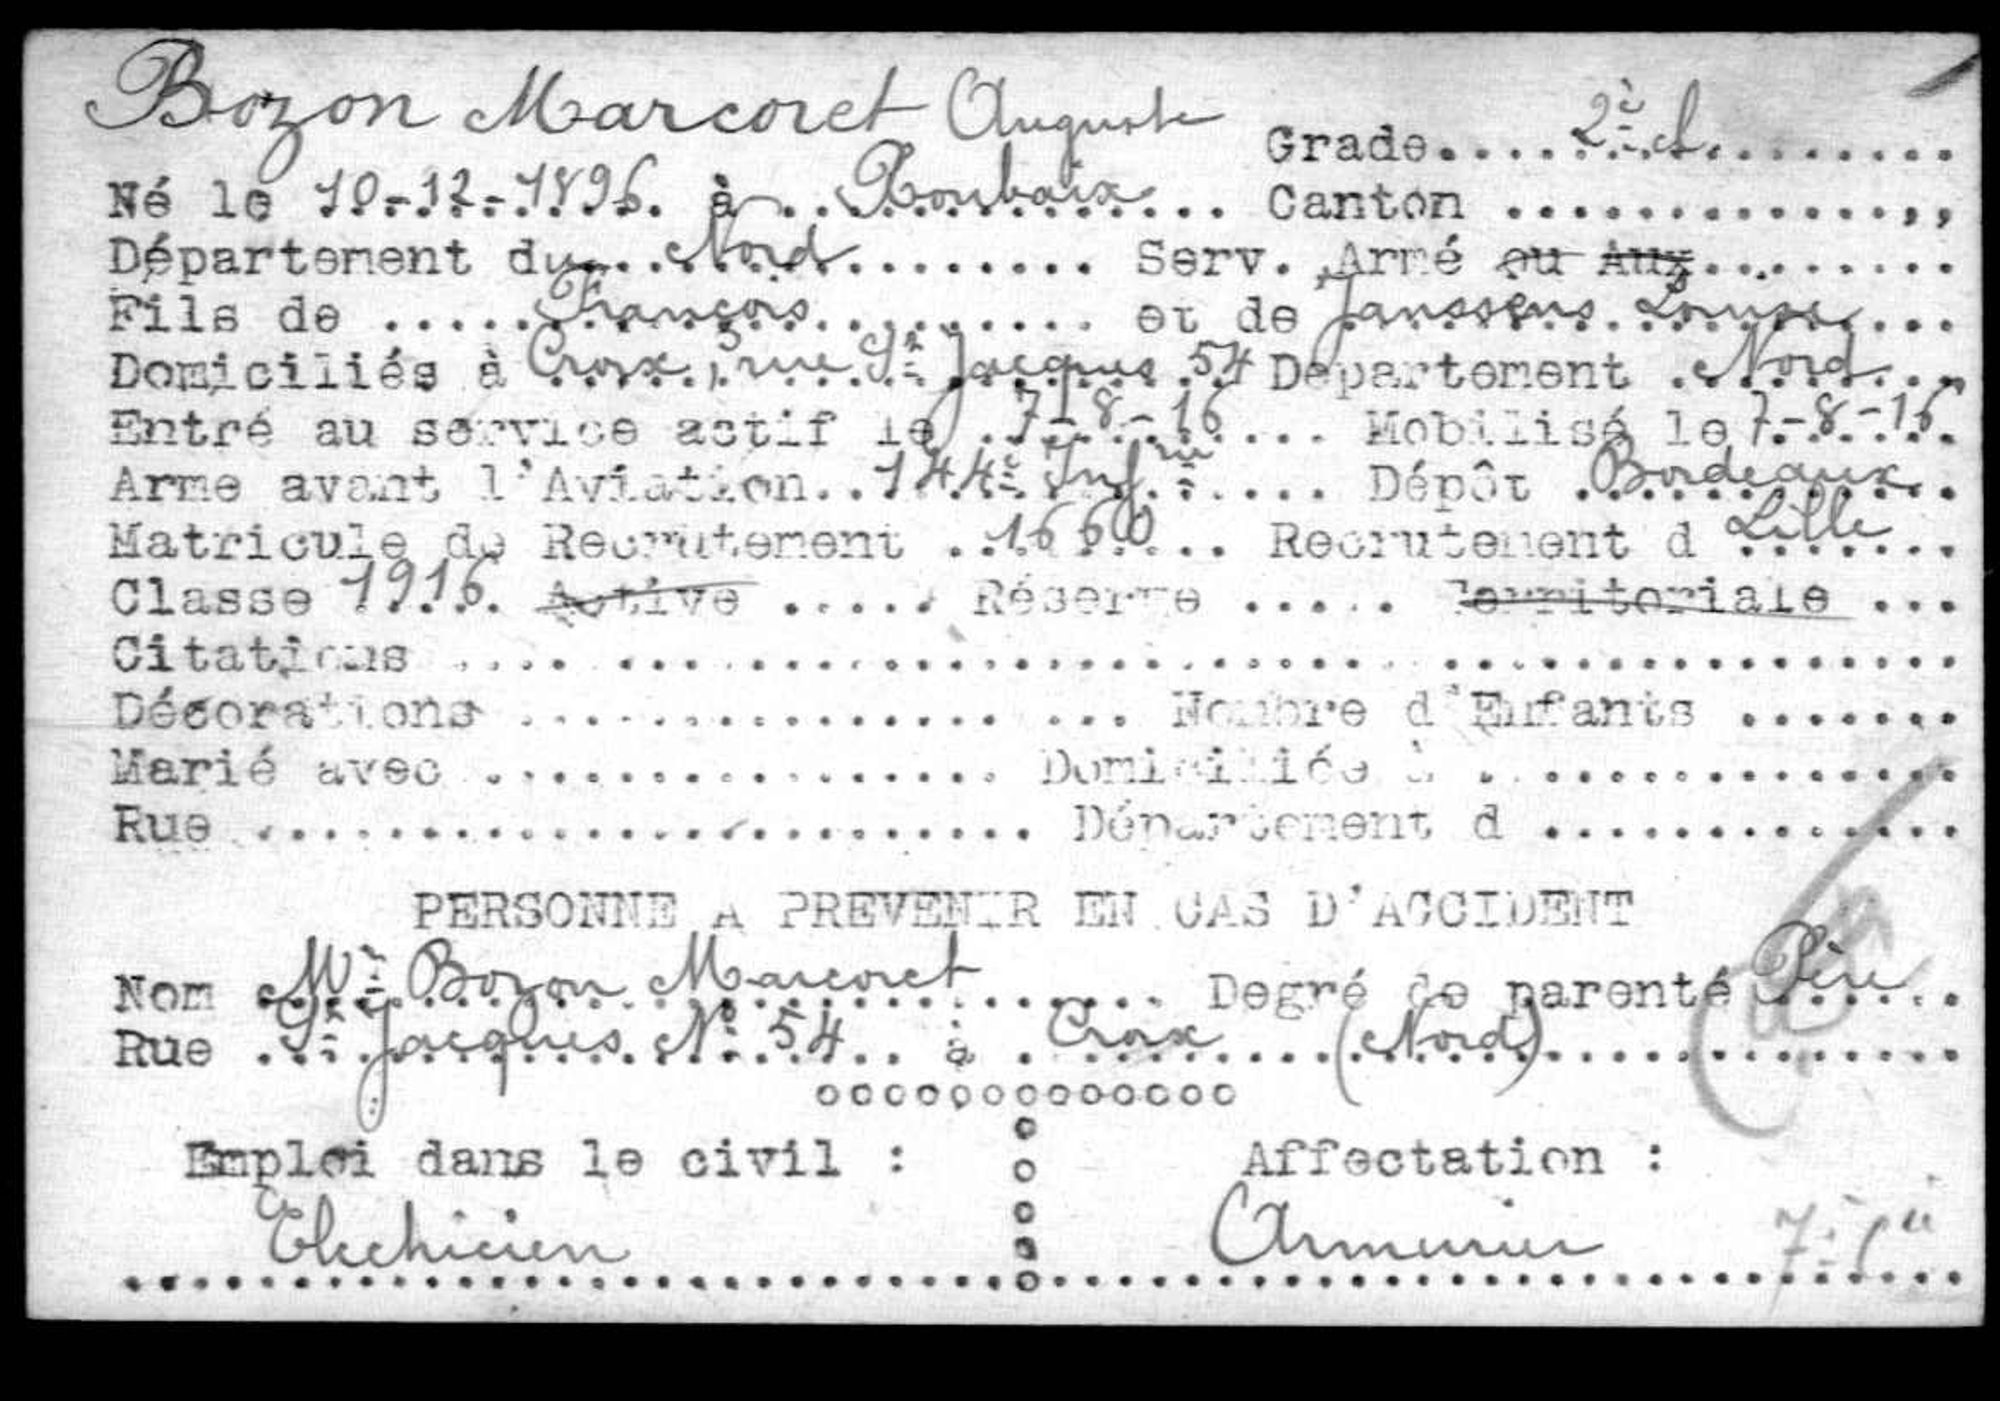 Bozon Marcoret Auguste Grade.... 2è cl.
Né le 10-12-1896 à Roubaix Canton ..............
Département du Nord Serv. Armé ou Aux
Fils de François et de Janssens Louise
Domiciliés à Croix, rue St Jacques 54 Département Nord
Entré au service actif le 7-8-16 Mobilisé le 7-8-16
Arme avant l'Aviation 144è Infrie Dépôt Bordeaux
Matricule de Recrutement 1660 Recrutement d Lille
Classe 1916 Active ..... Réserve ..... Territoriale ...
Citations
Décorations Nombre d'Enfants
Marié avec Domiciliée à
Rue Département d
PERSONNE A PREVENIR EN CAS D'ACCIDENT
Nom Mr Bozon Marcoret Degré de parenté Père
Rue St Jacques No 54 à Croix (Nord)
Emploi dans le civil : Affectation :
Electricien Armurier